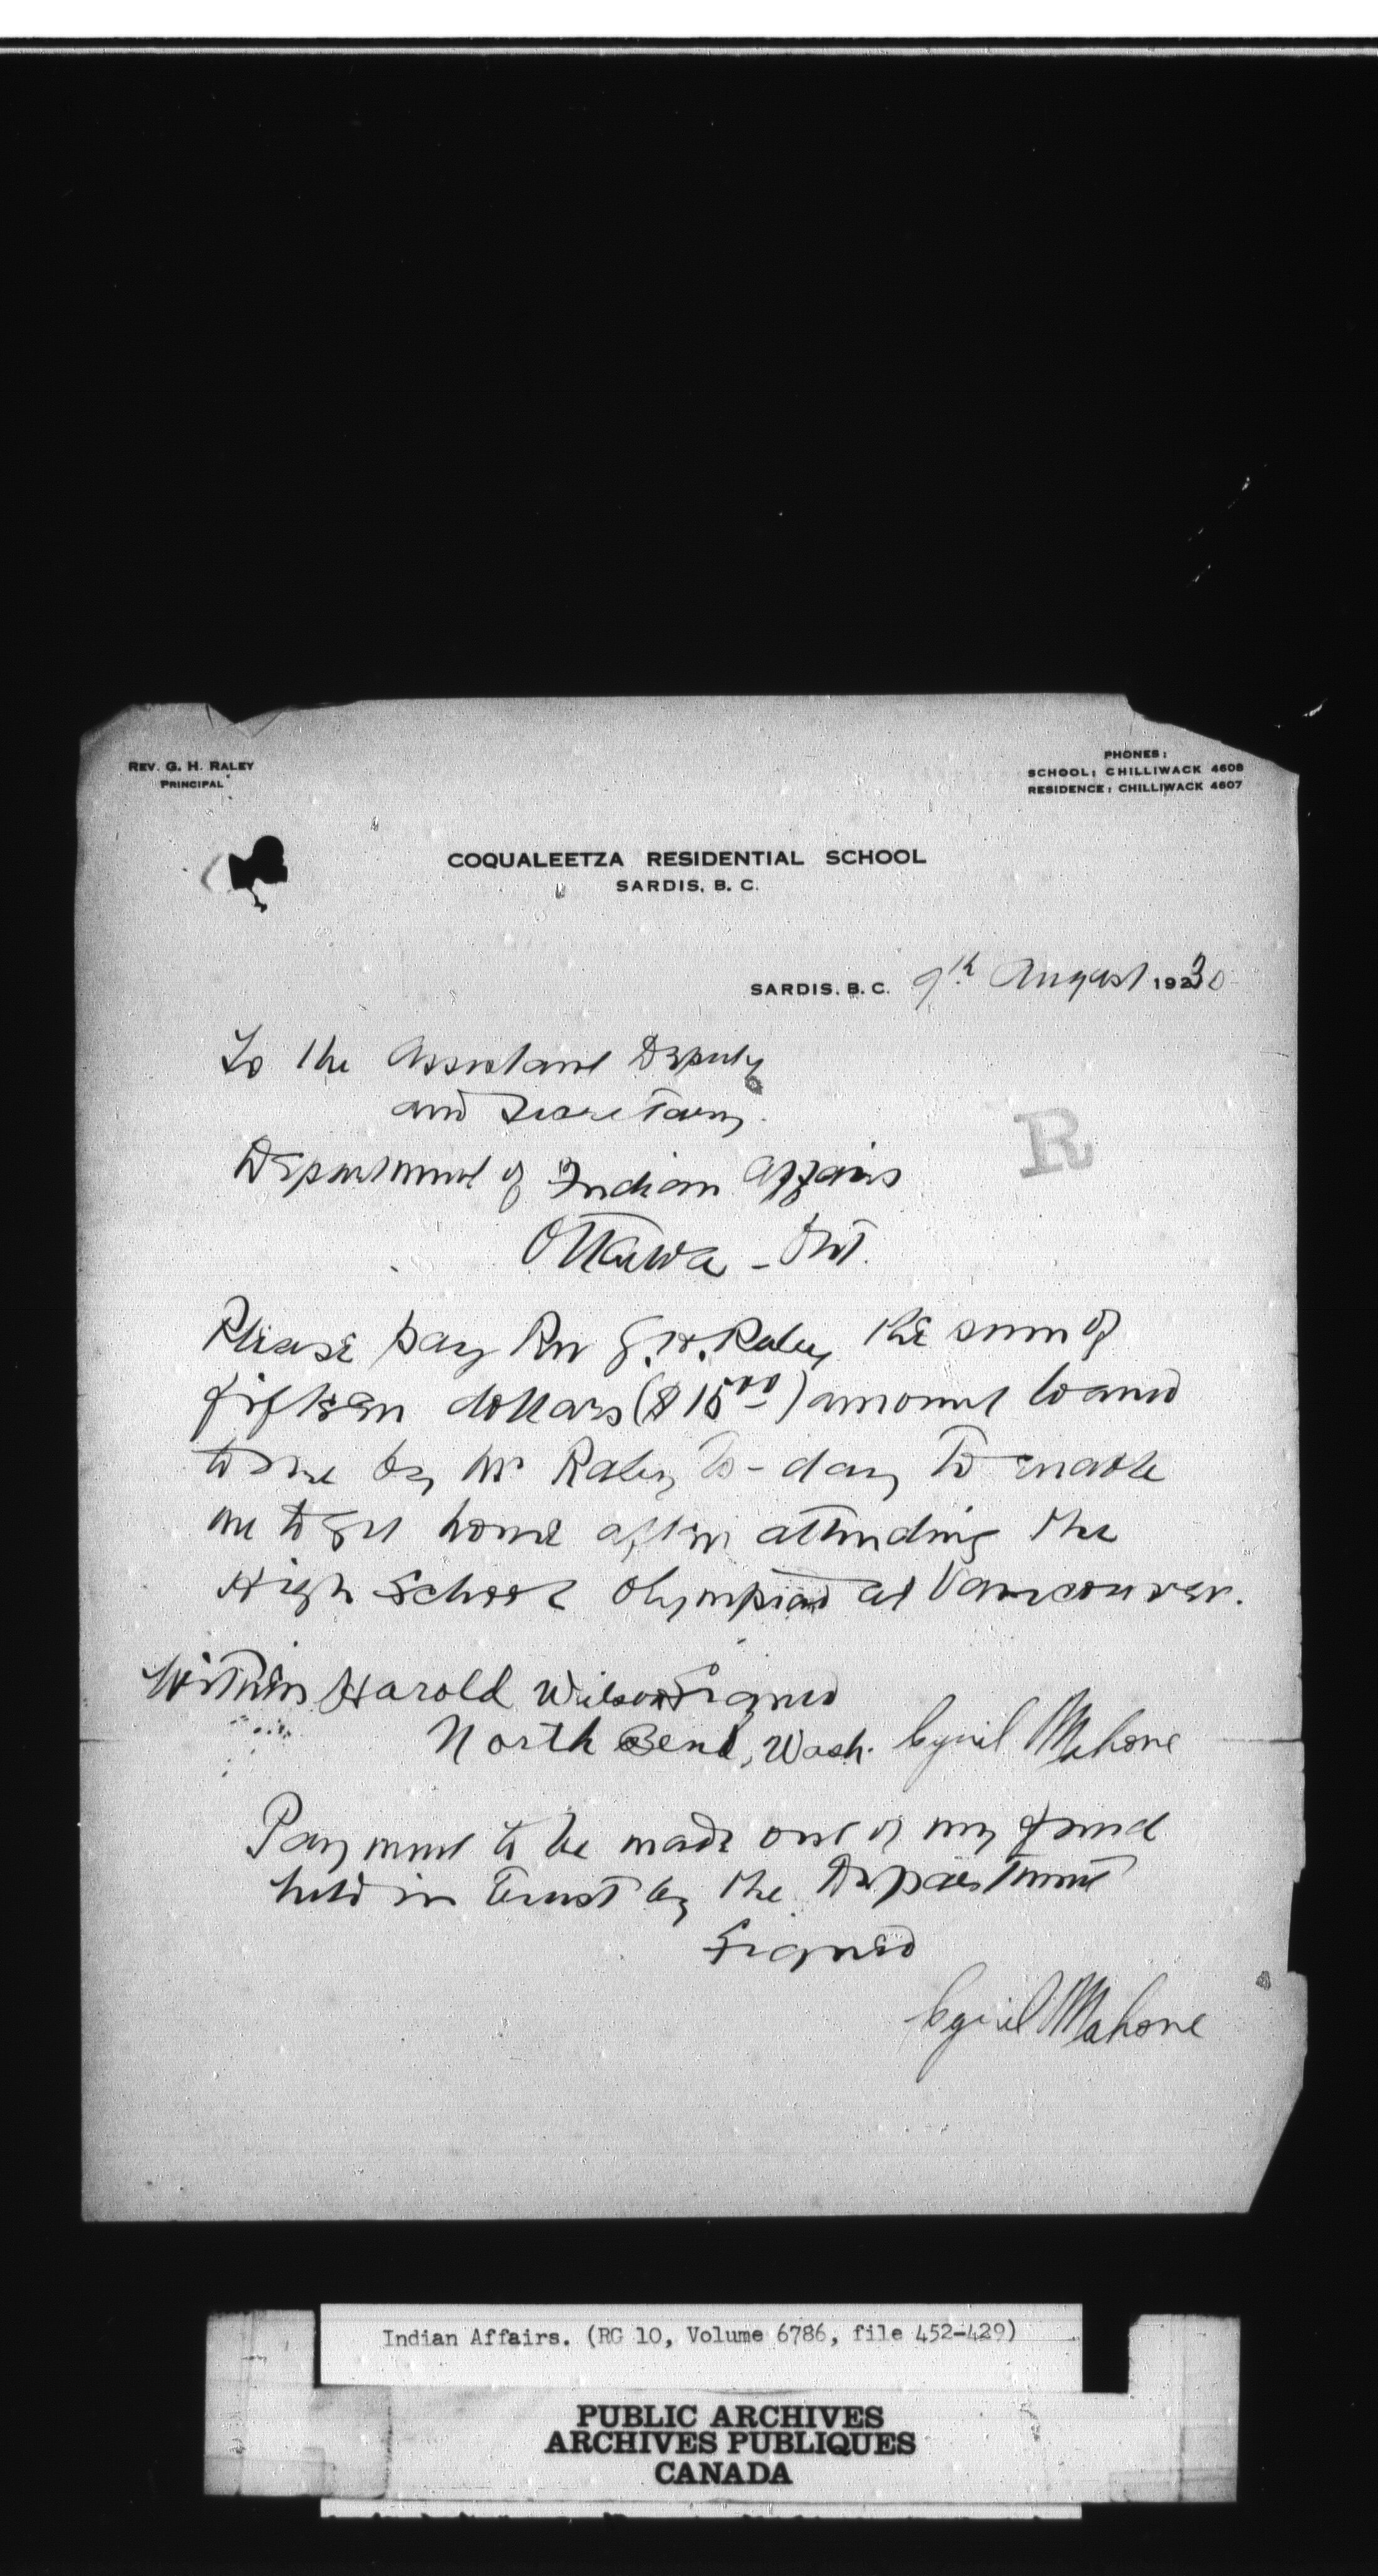 REV. G. H. RALEY
PRINCIPAL
PHONES:
SCHOOL: CHILLIWACK 4608
RESIDENCE: CHILLIWACK 4607
COQUALEETZA RESIDENTIAL SCHOOL
SARDIS, B. C.
SARDIS, B. C. 9th August 1930
To the Assistant Deputy
and Secretary.
R
Department of Indian Affairs
Ottawa - Ont.
Please pay Rev G. H. Raley the sum of
fifteen dollars ($15 00) amount loaned
to me by Mr Raley to-day to enable
me to get home after attending the
High School Olympiad at Vancouver.
Witness Harold Wilson Signed
North Bend, Wash. Cyril Mahone
Payment to be made out of my fund
held in trust by the Department
Signed
Cyril Mahone
Indian Affairs. (RG 10, Volume 6786, file 452-429)
PUBLIC ARCHIVES
ARCHIVES PUBLIQUES
CANADA